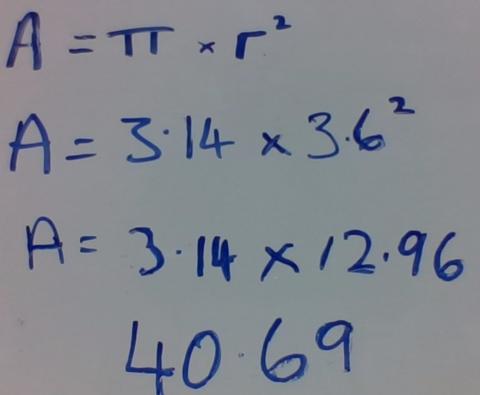 A = π × r²
A = 3·14 × 3.6²
A = 3·14 × 12.96
40.69